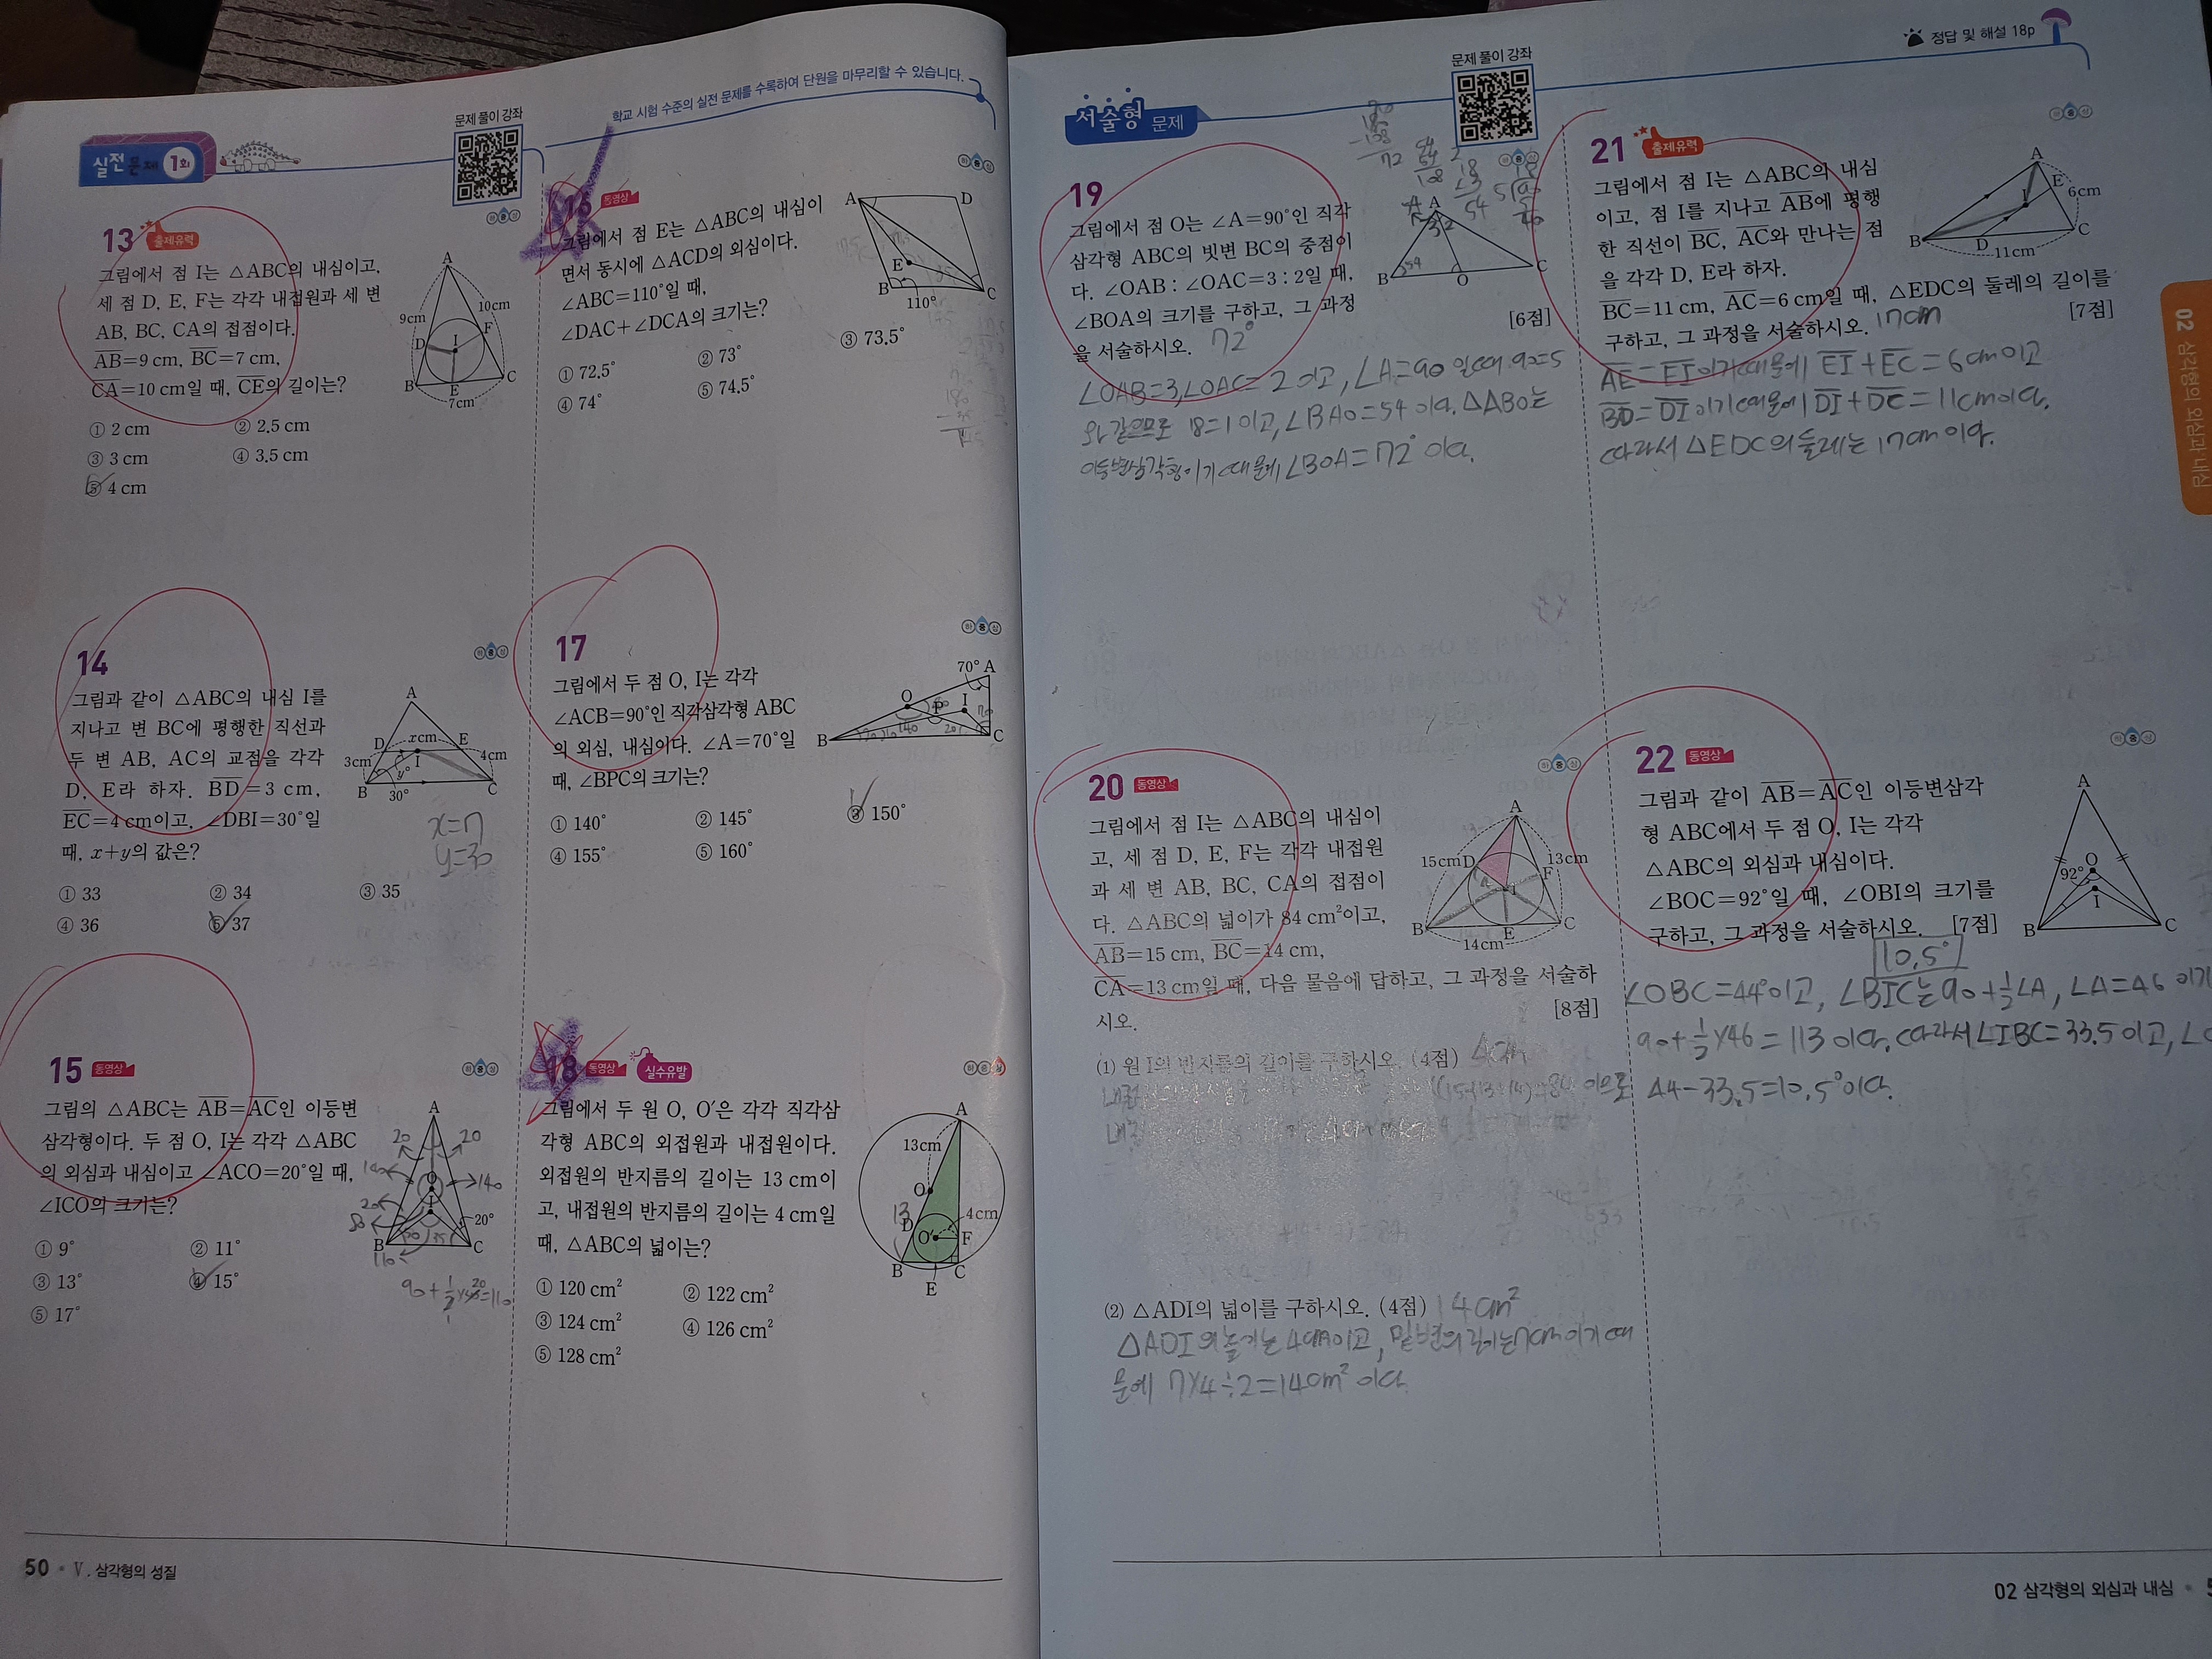 학교 시험 수준의 실전 문제를 수록하여 단원을 마무리할 수 있습니다.
실전 문제 1회
문제 풀이 강좌
하 중 상
13 출제유력
그림에서 점 I는 △ABC의 내심이고,
세 점 D, E, F는 각각 내접원과 세 변
AB, BC, CA의 접점이다.
AB=9 cm, BC=7 cm,
CA=10 cm일 때, CE의 길이는?
A
9cm
10cm
D
I
F
B
E
C
7cm
① 2 cm
② 2.5 cm
③ 3 cm
④ 3.5 cm
⑤ 4 cm
하 중 상
14
그림과 같이 △ABC의 내심 I를
지나고 변 BC에 평행한 직선과
두 변 AB, AC의 교점을 각각
D, E라 하자. BD=3 cm,
EC=4 cm이고, ∠DBI=30°일
때, x+y의 값은?
A
D
xcm
E
3cm
I
4cm
y°
B
30°
C
x=7
y=30
① 33
② 34
③ 35
④ 36
⑤ 37
하 중 상
15 동영상
그림의 △ABC는 AB=AC인 이등변
삼각형이다. 두 점 O, I는 각각 △ABC
의 외심과 내심이고 ∠ACO=20°일 때,
∠ICO의 크기는?
A
20
20
O
140
I
20°
B
C
110
① 9°
② 11°
③ 13°
④ 15°
⑤ 17°
하 중 상
16 동영상
그림에서 점 E는 △ABC의 내심이
면서 동시에 △ACD의 외심이다.
∠ABC=110°일 때,
∠DAC+∠DCA의 크기는?
A
D
E
B
110°
C
① 72.5°
② 73°
③ 73.5°
④ 74°
⑤ 74.5°
하 중 상
17
그림에서 두 점 O, I는 각각
∠ACB=90°인 직각삼각형 ABC
의 외심, 내심이다. ∠A=70°일
때, ∠BPC의 크기는?
70° A
O
P
I
B
140
20
C
① 140°
② 145°
③ 150°
④ 155°
⑤ 160°
하 중 상
18 동영상 실수유발
그림에서 두 원 O, O′은 각각 직각삼
각형 ABC의 외접원과 내접원이다.
외접원의 반지름의 길이는 13 cm이
고, 내접원의 반지름의 길이는 4 cm일
때, △ABC의 넓이는?
A
13cm
O
13
D
4cm
O′
F
B
E
C
① 120 cm²
② 122 cm²
③ 124 cm²
④ 126 cm²
⑤ 128 cm²
50 • Ⅴ. 삼각형의 성질
정답 및 해설 18p
서술형 문제
문제 풀이 강좌
하 중 상
19
그림에서 점 O는 ∠A=90°인 직각
삼각형 ABC의 빗변 BC의 중점이
다. ∠OAB : ∠OAC=3 : 2일 때,
∠BOA의 크기를 구하고, 그 과정
을 서술하시오.
[6점]
72°
A
3 2
B
54
O
C
∠OAB=3, ∠OAC=2 이고, ∠A=90 일때 90=5
와 같으므로 18=1 이고, ∠BAO=54 이다. △ABO는
이등변삼각형이기 때문에 ∠BOA=72° 이다.
하 중 상
20 동영상
그림에서 점 I는 △ABC의 내심이
고, 세 점 D, E, F는 각각 내접원
과 세 변 AB, BC, CA의 접점이
다. △ABC의 넓이가 84 cm²이고,
AB=15 cm, BC=14 cm,
CA=13 cm일 때, 다음 물음에 답하고, 그 과정을 서술하
시오.
[8점]
A
15cm
D
13cm
F
I
B
E
C
14cm
(1) 원 I의 반지름의 길이를 구하시오. (4점) 4cm
(2) △ADI의 넓이를 구하시오. (4점) 14cm²
△ADI의 높이는 4cm이고, 밑변의 길이는 7cm이기 때
문에 7×4÷2=14cm² 이다.
하 중 상
21 출제유력
그림에서 점 I는 △ABC의 내심
이고, 점 I를 지나고 AB에 평행
한 직선이 BC, AC와 만나는 점
을 각각 D, E라 하자.
BC=11 cm, AC=6 cm일 때, △EDC의 둘레의 길이를
구하고, 그 과정을 서술하시오.
[7점]
17cm
A
E
6cm
I
B
D
C
11cm
AE=EI이기때문에 EI+EC=6cm이고
BD=DI이기때문에 DI+DC=11cm이다.
따라서 △EDC의 둘레는 17cm이다.
하 중 상
22 동영상
그림과 같이 AB=AC인 이등변삼각
형 ABC에서 두 점 O, I는 각각
△ABC의 외심과 내심이다.
∠BOC=92°일 때, ∠OBI의 크기를
구하고, 그 과정을 서술하시오. [7점]
A
O
92°
I
B
C
10.5°
∠OBC=44°이고, ∠BIC는 90+½∠A, ∠A=46 이기
90+½×46=113 이다. 따라서 ∠IBC=33.5 이고,
44-33.5=10.5°이다.
02 삼각형의 외심과 내심
02 삼각형의 외심과 내심 •